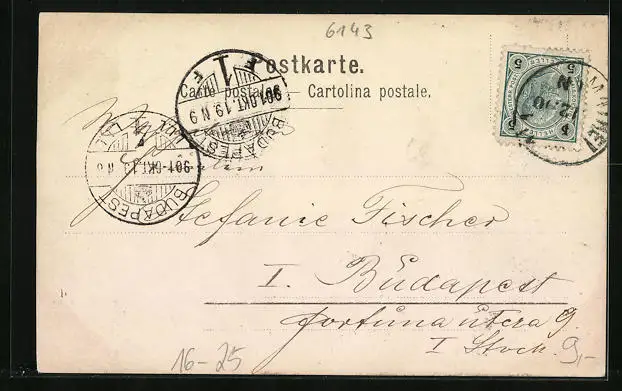 6143
Postkarte.
Carte postale. — Cartolina postale.
BUDAPEST
901 OKT. 19. N 9
BUDAPEST
901 OKT. 19. N 8
5 5
5 5
Stefanie Fischer
I. Budapest
fortuna utcza 9.
I Stock.
16-25
9,-